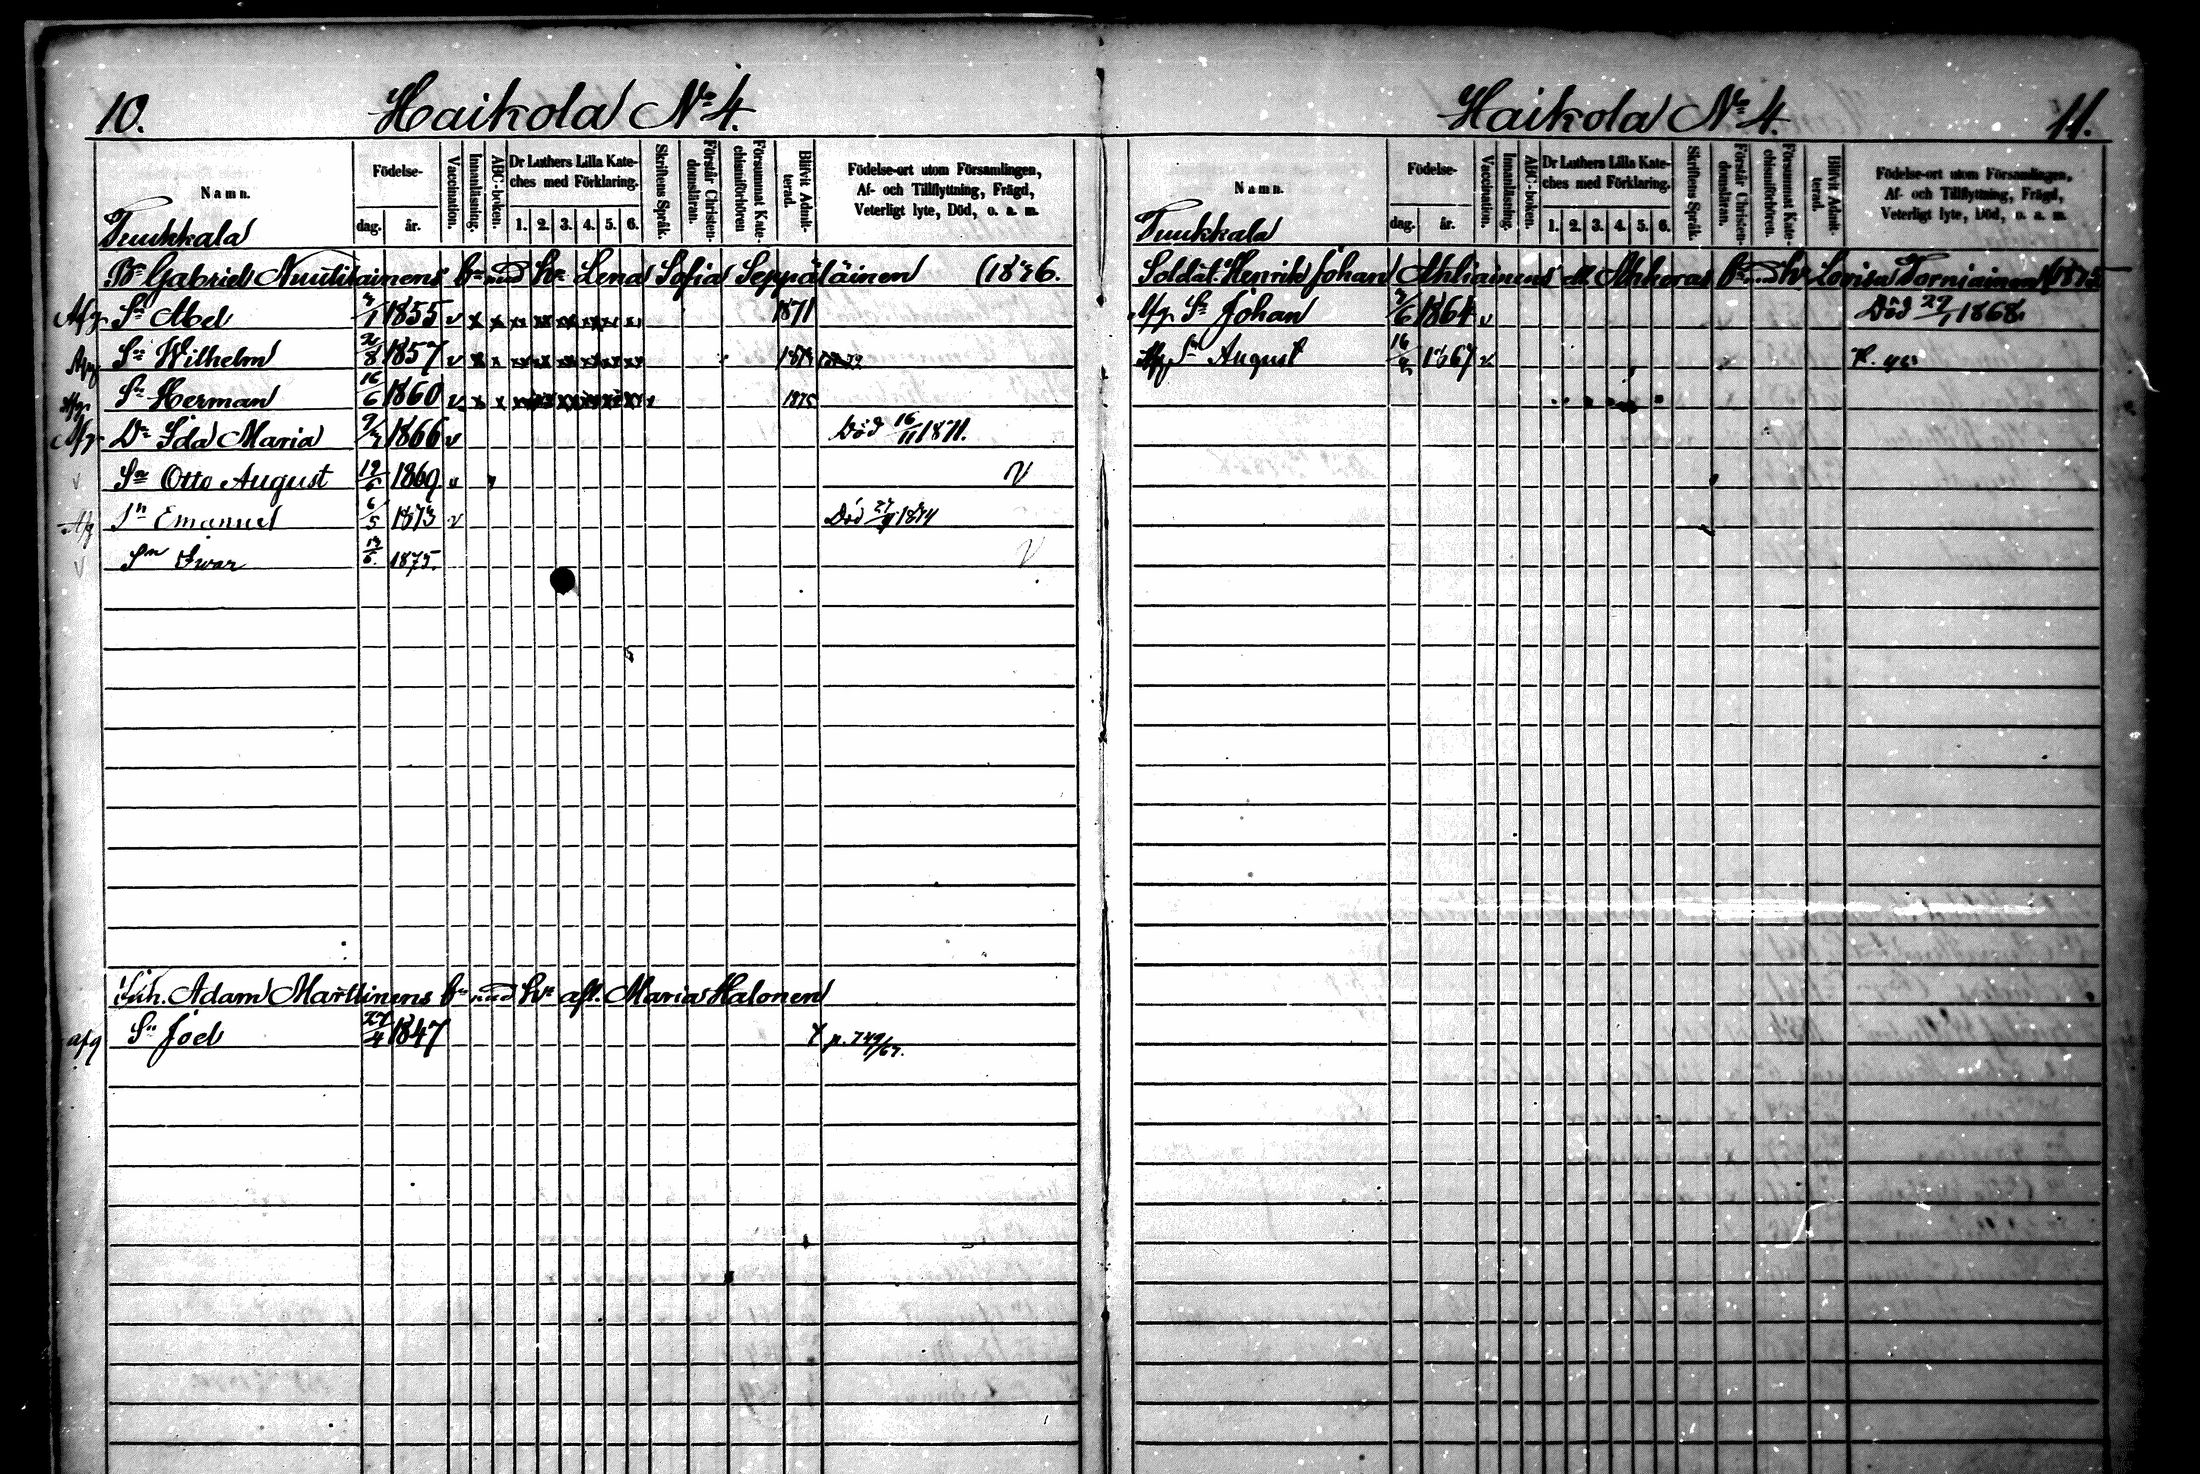 10. Haikola No 4.
Namn. Födelse- dag. år. Vaccination. Innanläsning. ABC-boken. Dr Luthers Lilla Kate-ches med Förklaring. 1. 2. 3. 4. 5. 6. Skriftens Språk. Förstår Christen-domsläran. Försummat Kate-chismiförhören Blifvit Admit-terad. Födelse-ort utom Församlingen, Af- och Tillflyttning, Frägd, Veterligt lyte, Död, o. a. m.
Tuukkala
Bn Gabriel Nuutikainens bn med hu Lena Sofia Seppäläinen (1876.
Afg. Sn Abel 1855 v x x xx xx xx xx xx 1871
Afg Sn Wilhelm 2/8 1857 v x x xx xx xx xx xx
Afg. Sn Herman 16/6 1860 v x x xx xx xx xx xx 1875
Afg. Dr Ida Maria 1866 v Död 16/11 1871.
v Sn Otto August 1869 v v
Afg Sn Emanuel 6/5 1873 v Död 1874
v Sn Iwar 1875. v
Inh. Adam Marttinens bn med hu afl. Maria Halonen
afg Sn Joel 27/4 1847 p. 749/67.
Haikola No 4. 11.
Namn. Födelse- dag. år. Vaccination. Innanläsning. ABC-boken. Dr Luthers Lilla Kate-ches med Förklaring. 1. 2. 3. 4. 5. 6. Skriftens Språk. Förstår Christen-domsläran. Försummat Kate-chismiförhören. Blifvit Admit-terad. Födelse-ort utom Församlingen, Af- och Tillflyttning, Frägd, Veterligt lyte, Död, o. a. m.
Tuukkala
Soldat. Henrik Johan Ahliainens ell. Ahkeras bn med hu Lovisa Torniainen 1875
Afg. Sn Johan 1864 v Död 1868.
Afg Sn August 1867 v